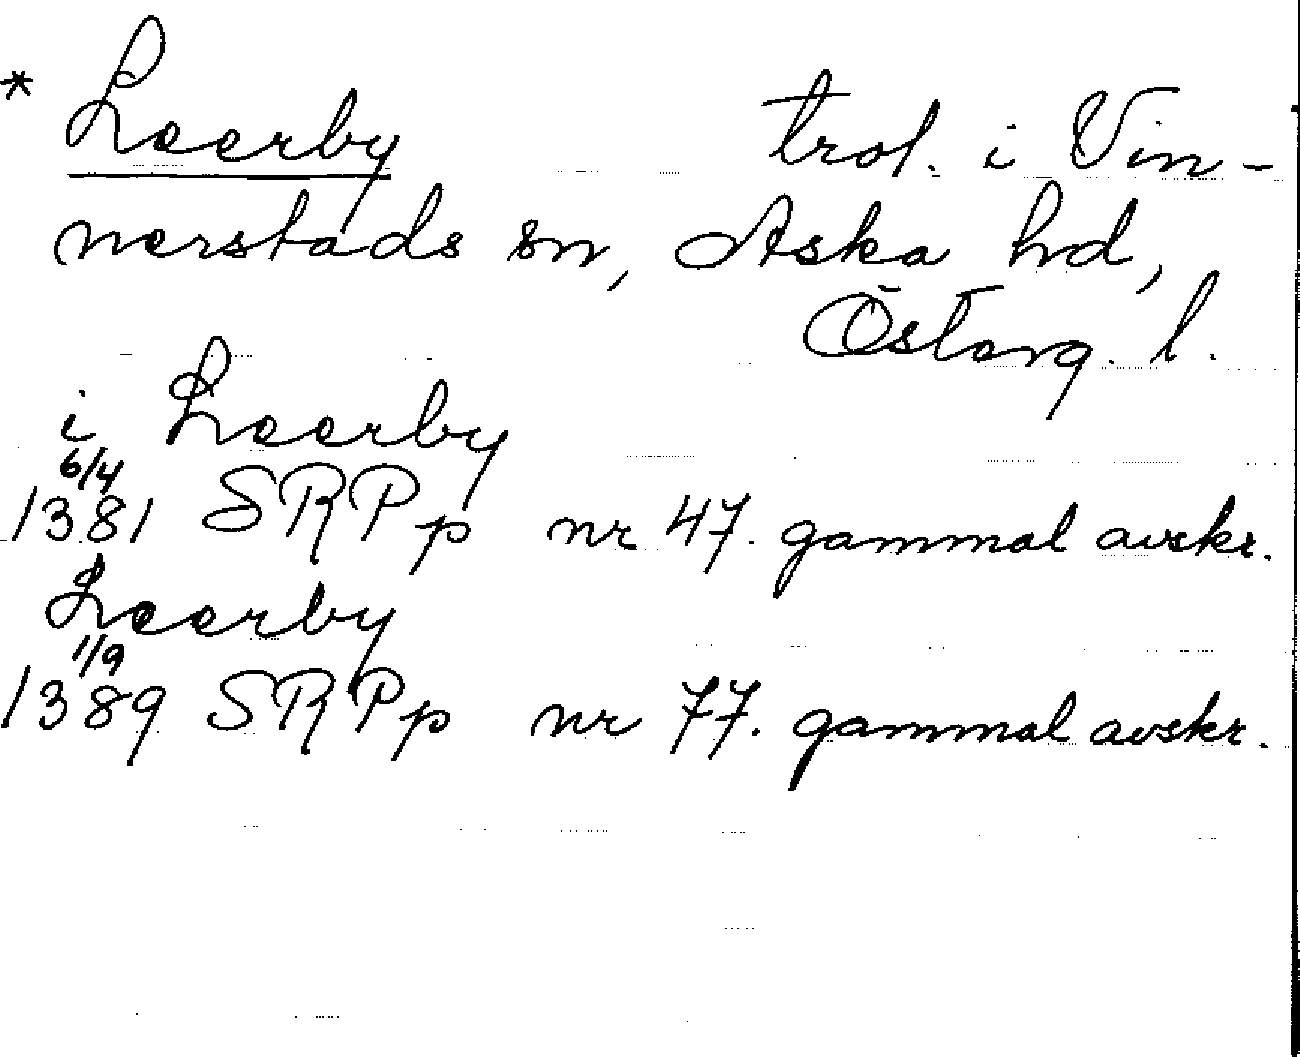 * Leerby trol. i Vin-
nerstads sn, Aska hd,
Österg. l.
i Leerby
6/4
1381 SRPp nr 47. gammal avskr.
Leerby
1/9
1389 SRPp nr 77. gammal avskr.